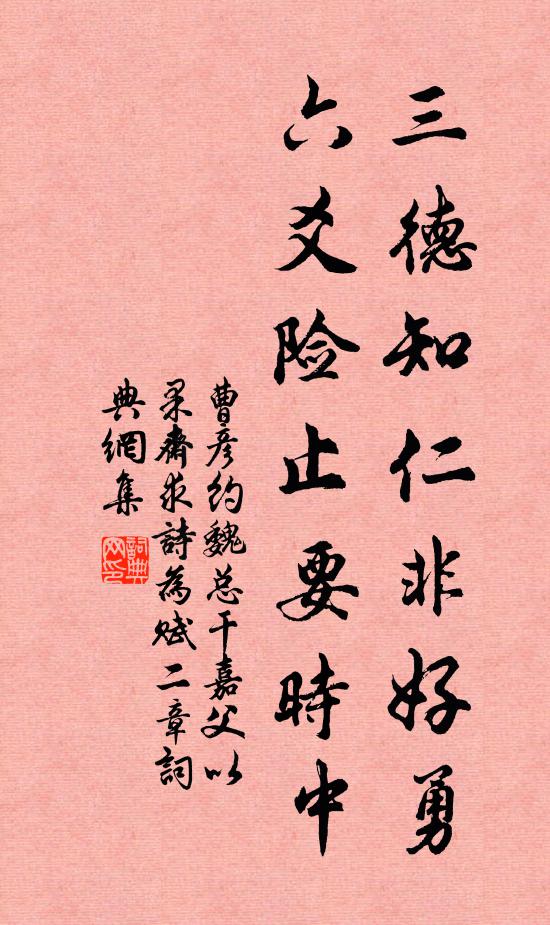 三德知仁非好勇
六爻险止要時中
曹彦约魏总干嘉父以
柔齋求詩為赋二章詞
典網集
詞典
网印